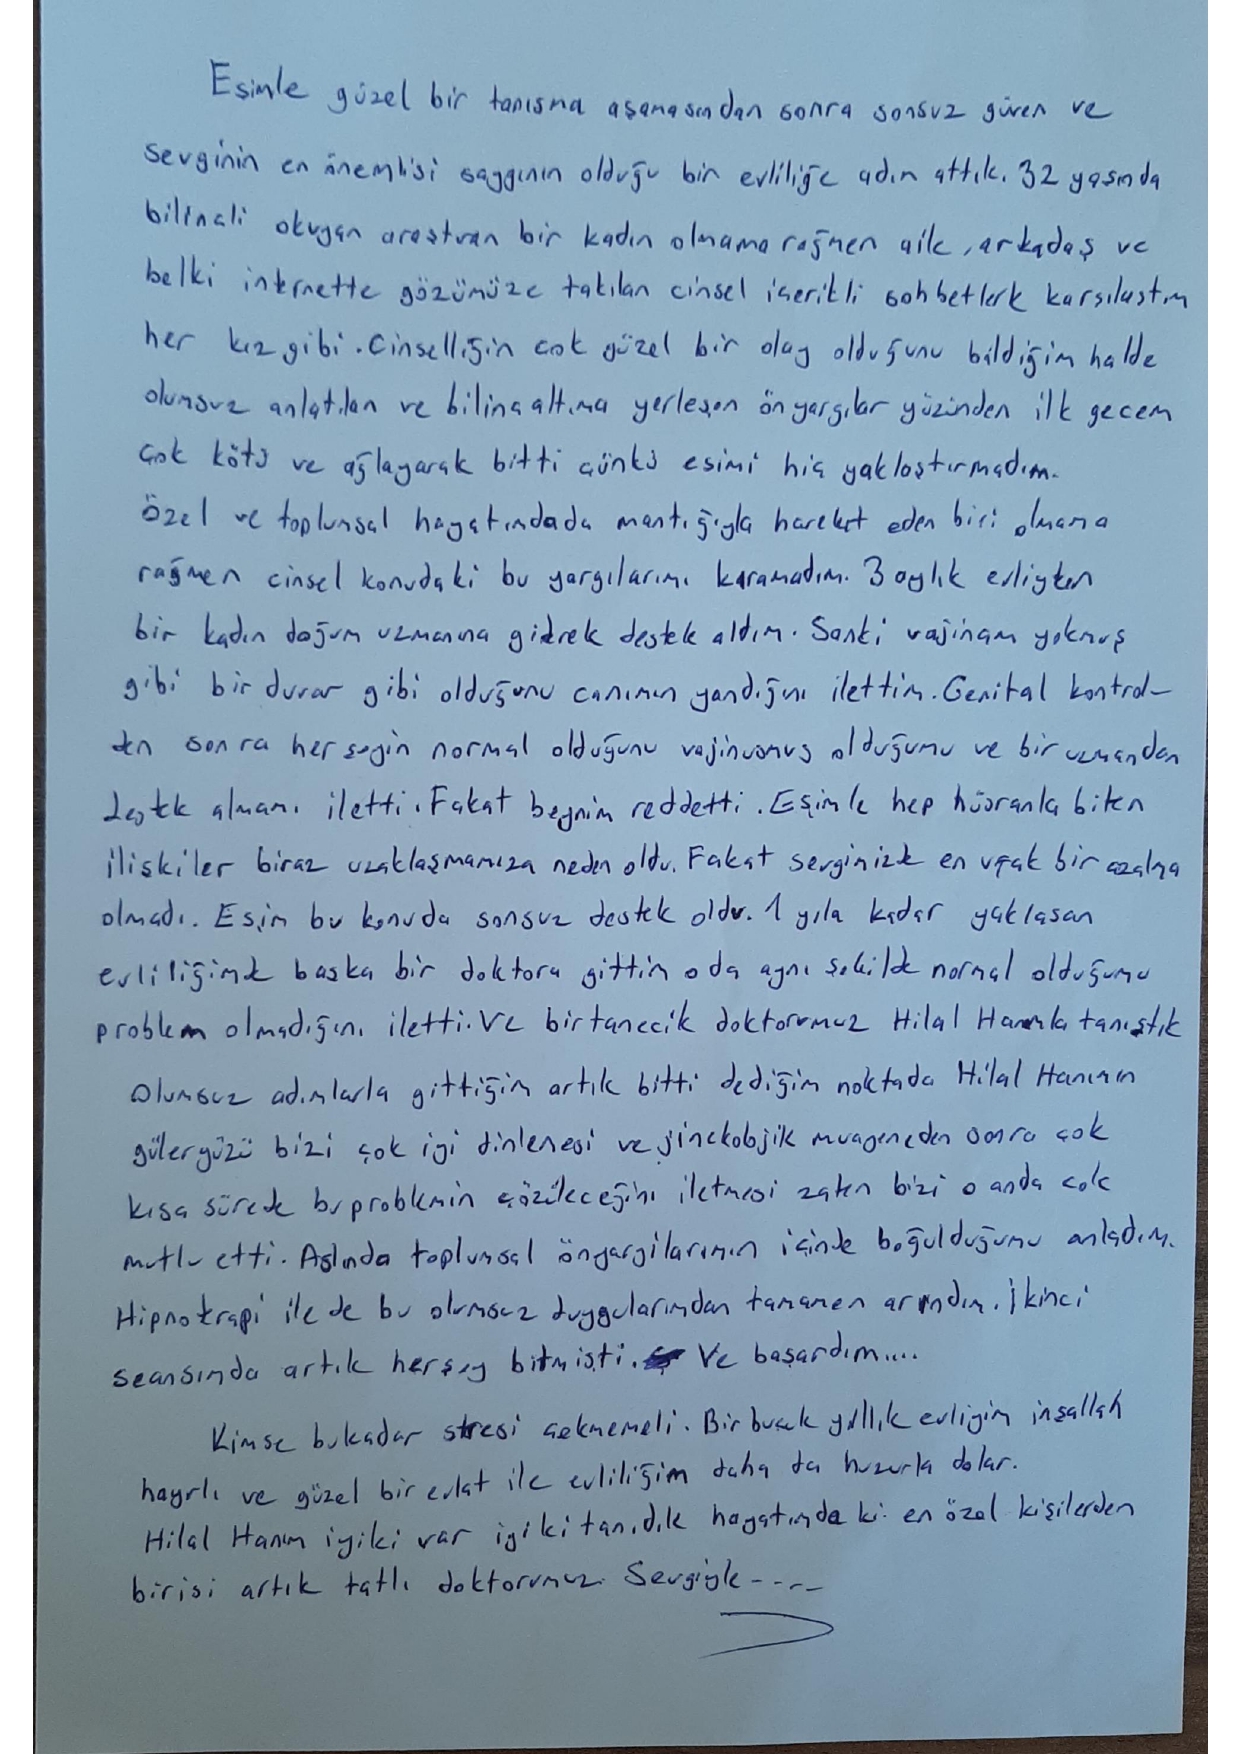 Eşimle güzel bir tanısma aşamasından sonra sonsuz güven ve
sevginin en önemlisi saygının olduğu bir evliliğe adım attık. 32 yaşında
bilinçli okuyan araştıran bir kadın olmama rağmen aile, arkadaş ve
belki internette gözümüze takılan cinsel içerikli sohbetlerle karsılastım
her kız gibi. Cinselliğin cok güzel bir olay olduğunu bildiğim halde
olumsuz anlatılan ve bilinçaltıma yerleşen önyargılar yüzünden ilk gecem
çok kötü ve ağlayarak bitti çünkü esimi hiç yaklostırmadım.
Özel ve toplumsal hayatındada mantığıyla hareket eden biri olmama
rağmen cinsel konudaki bu yargılarımı kıramadım. 3 aylık evliyken
bir kadın doğum uzmanına giderek destek aldım. Sanki vajinam yokmuş
gibi bir duvar gibi olduğunu canımın yandığını ilettim. Genital kontrol-
den sonra herseyin normal olduğunu vajinusmus olduğumu ve bir uzmandan
destek almamı iletti. Fakat beynim reddetti. Eşimle hep hüsranla biten
ilişkiler biraz uzaklaşmamıza neden oldu. Fakat sevginizde en ufak bir azalma
olmadı. Esim bu konuda sonsuz destek oldu. 1 yıla kadar yaklasan
evliliğimde baska bir doktora gittim o da aynı şekilde normal olduğumu
problem olmadığını iletti. Ve birtanecik doktorumuz Hilal Hanımla tanıştık
Olumsuz adımlarla gittiğim artık bitti dediğim noktada Hilal Hanımın
güleryüzü bizi çok iyi dinlemesi ve jinekolojik muayeneden sonra çok
kısa sürede bu problemin çözüleceğini iletmesi zaten bizi o anda cok
mutlu etti. Aslında toplumsal önyargılarımın içinde boğulduğumu anladım.
Hipnoterapi ile de bu olumsuz duygularımdan tamamen arındım. İkinci
seansında artık herşey bitmişti. Ve başardım....
Kimse bukadar stresi çekmemeli. Bir buçuk yıllık evliyim inşallah
hayırlı ve güzel bir evlat ile evliliğim daha da huzurla dolar.
Hilal Hanım iyiki var iyiki tanıdık hayatımda ki en özel kişilerden
birisi artık tatlı doktorumuz. Sevgiyle ----